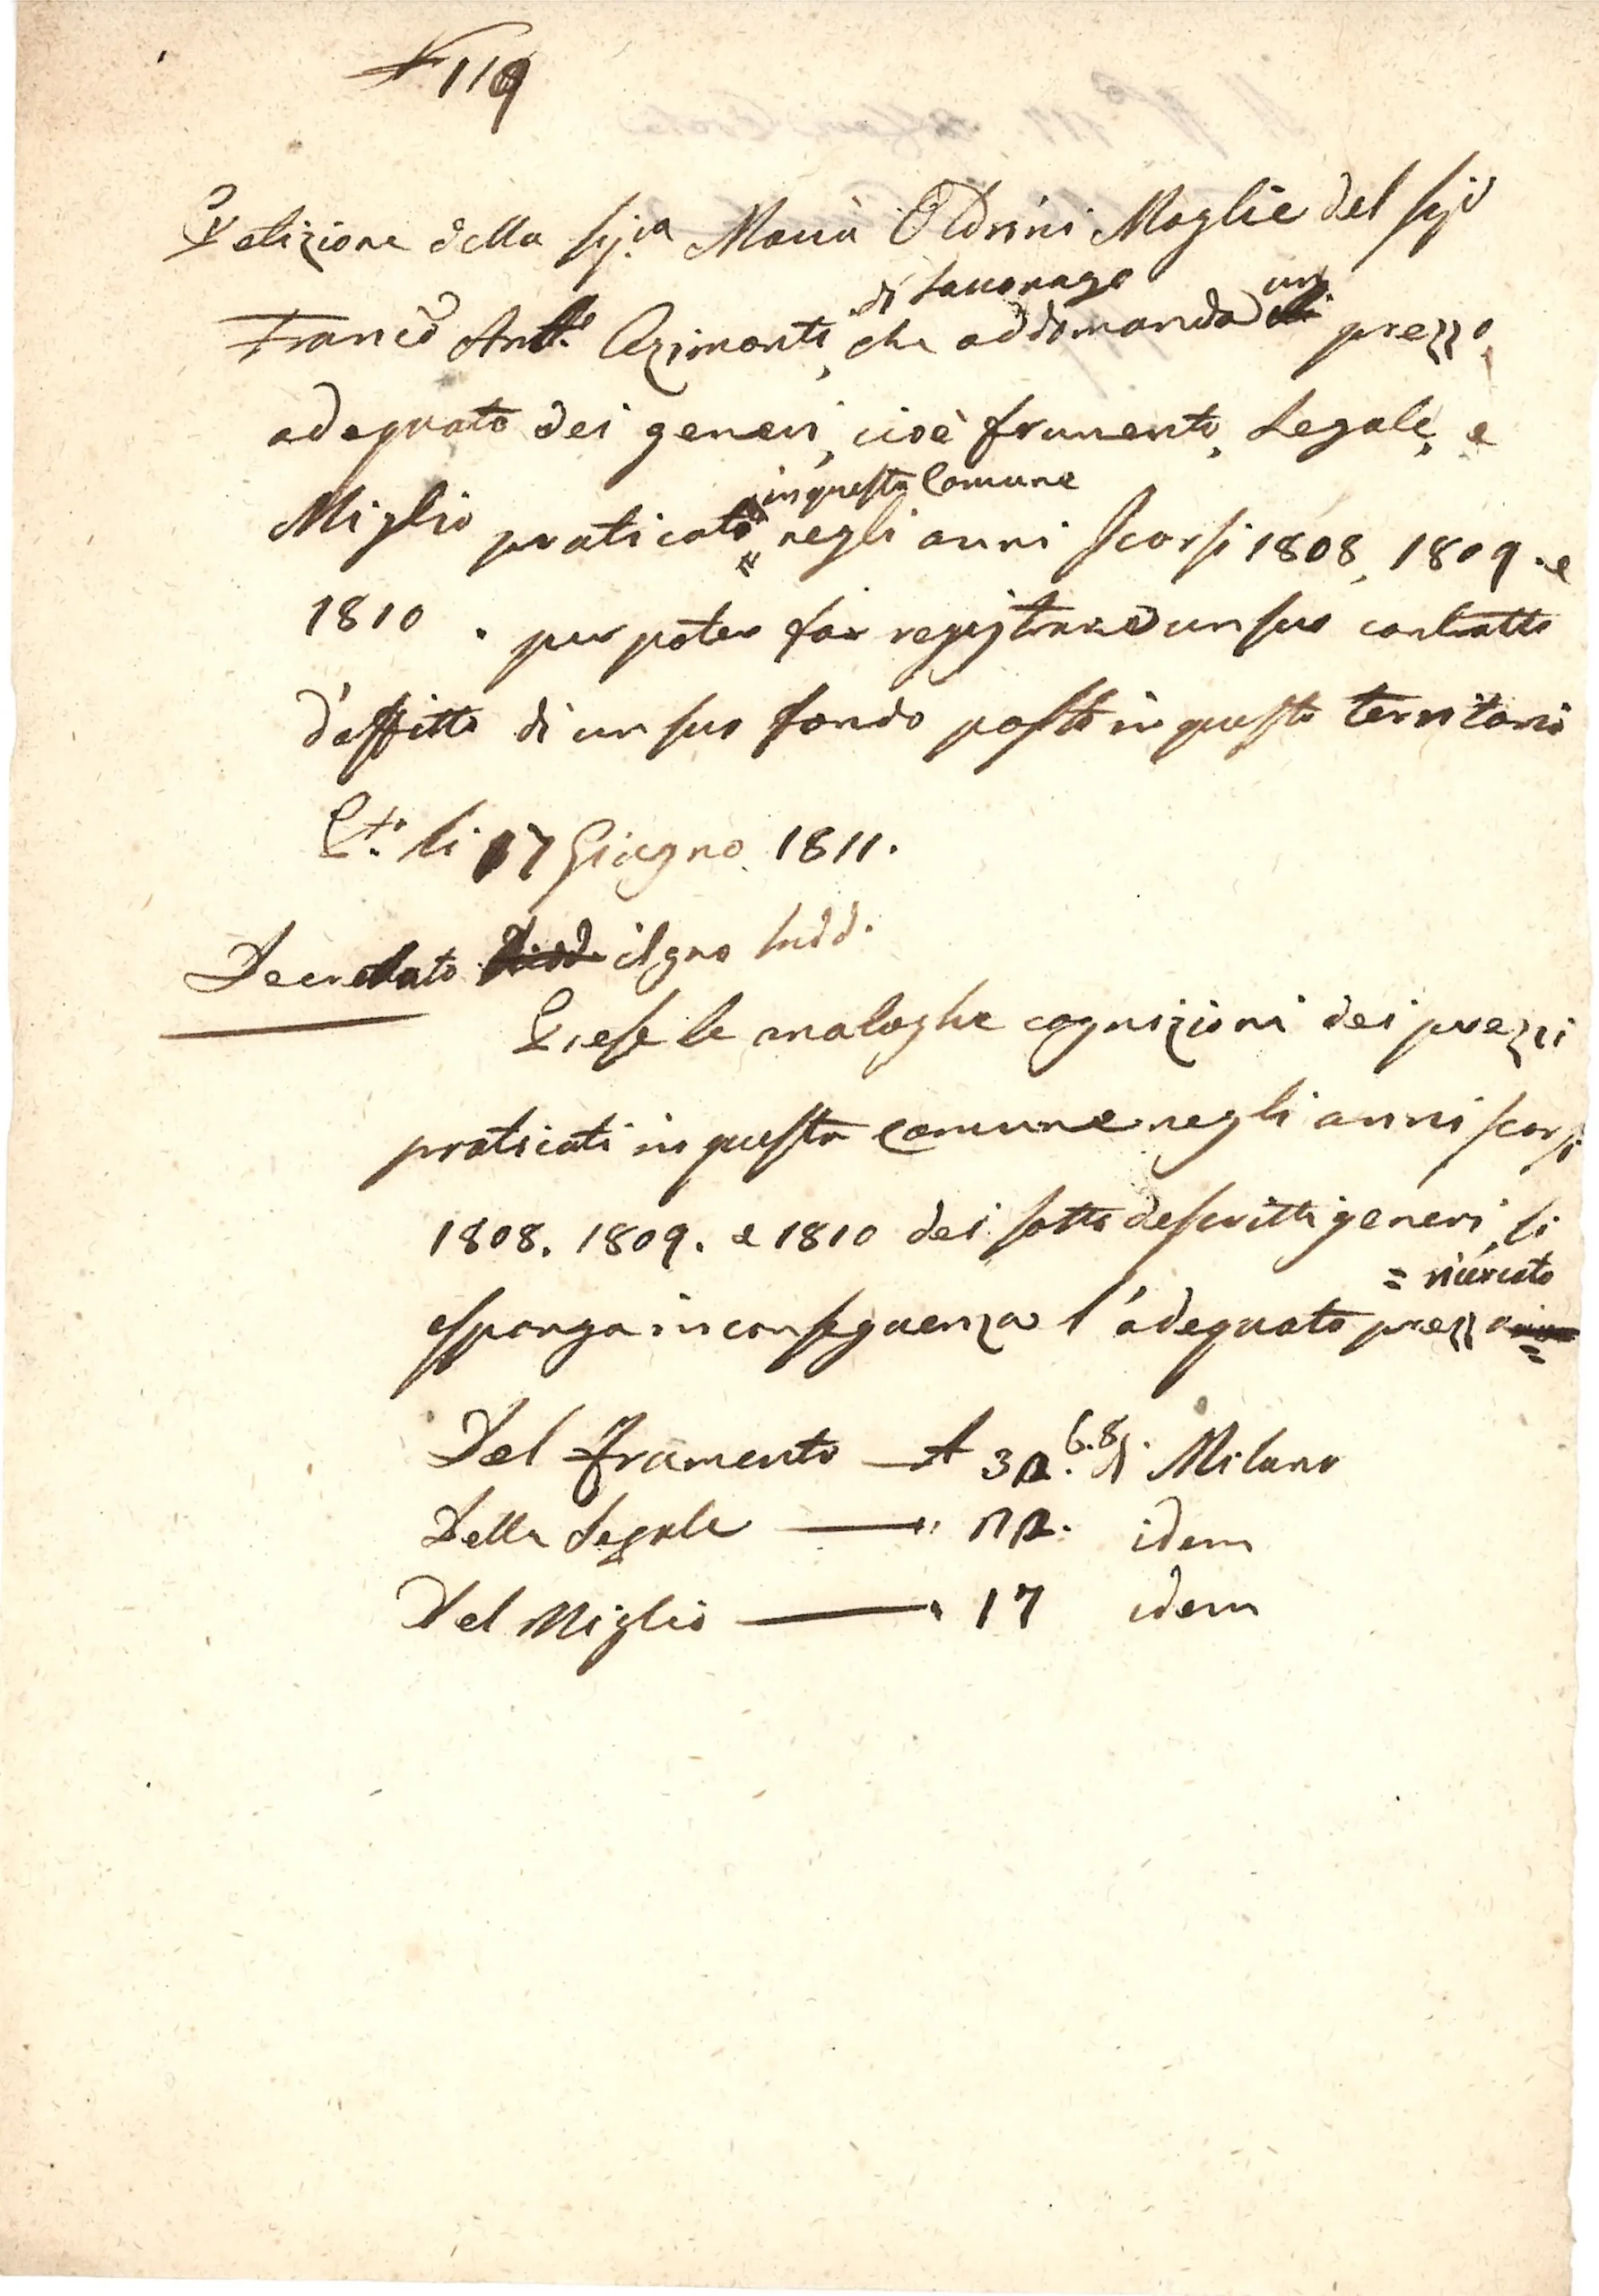 N 119
Petizione della Sig.ra Maria Oldrini Moglie del Sigr
di Sacconago un
Franco Anto. Azimonti, che addomanda prezzo
adequato dei generi, cioè frumento, Segale, e
in questa Comune
Miglio praticato negli anni scorsi 1808, 1809. e
1810. per poter far registrare un suo contratto
d'affitto di un suo fondo posto in questo territorio
li 17 Giugno 1811.
Decretato il gno sudd.
Prese le analoghe cognizioni dei prezzi
praticati in questa comune negli anni scorsi
1808. 1809. e 1810 dei sotto descritti generi, si
= ricercato
esponga in conseguenza l'adequato prezzo =
6.8
Del frumento — £ 32. di Milano
Della Segale — 22. idem
Del Miglio — 17 idem